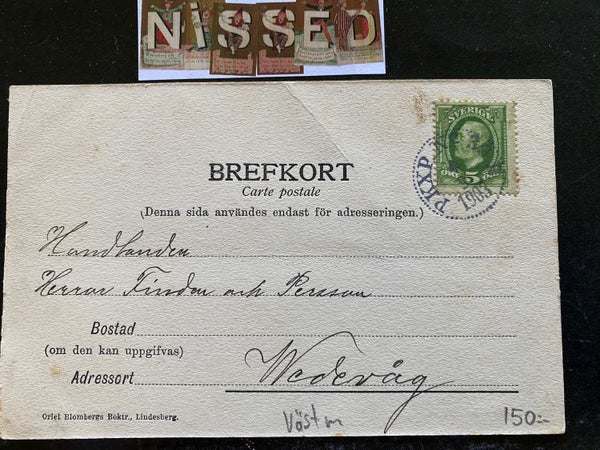 NISSED
BREFKORT
Carte postale
(Denna sida användes endast för adresseringen.)
SVERIGE
ÖRE 5
PKXP
1903
Handlanden
Herrar Finder och Persson
Bostad
(om den kan uppgifvas)
Adressort Wedevåg
Oriel Blombergs Boktr., Lindesberg.
Västm
150:-